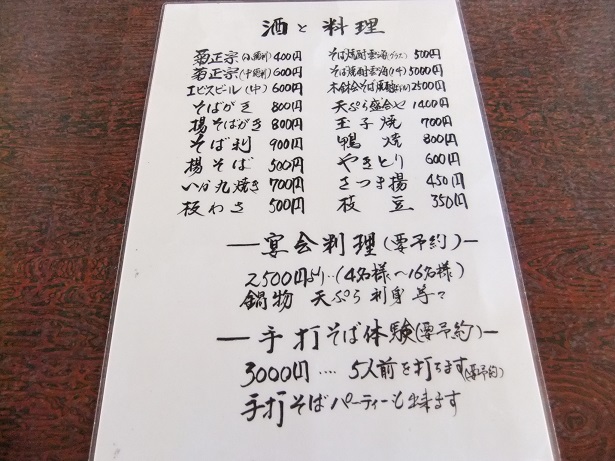 酒と料理
菊正宗(小徳利) 400円
菊正宗(中徳利) 600円
エビスビール(中) 600円
そばがき 800円
揚そばがき 800円
そば刺 900円
揚そば 500円
いか丸焼き 700円
板わさ 500円
そば焼酎雲海(グラス) 500円
そば焼酎雲海(1本) 5000円
2500円
天ぷら盛合せ 1400円
玉子焼 700円
鴨焼 800円
やきとり 600円
さつま揚 450円
枝豆 350円
―宴会料理(要予約)―
2500円より‥(4名様〜16名様)
鍋物 天ぷら 刺身 等々
―手打そば体験(要予約)―
3000円‥‥5人前を打ちます(要予約)
手打そばパーティーも出来ます